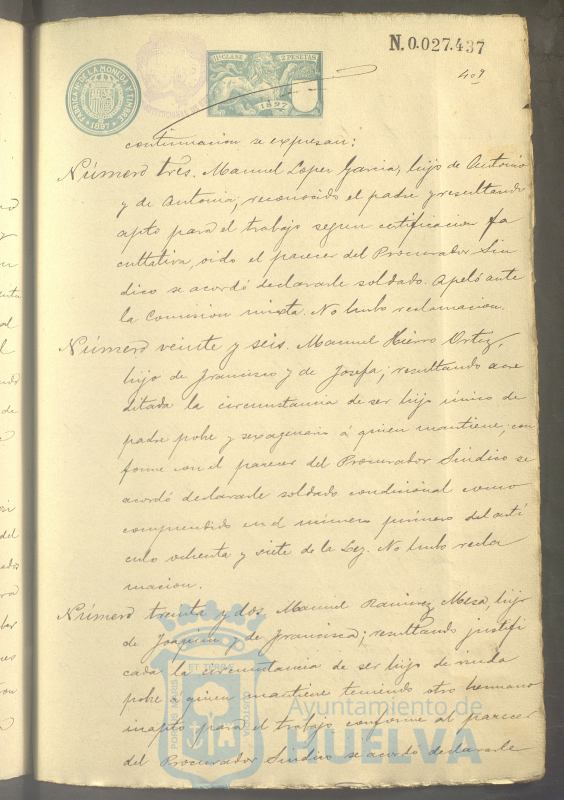 N.0.027.437
11ª CLASE 2 PESETAS
1897
FABRICA Nal DE LA MONEDA Y TIMBRE
1897
409
continuacion se expresan:
Número tres. Manuel Lopez Garcia, hijo de Antonio
y de Antonia; reconocido el padre y resultando
apto para el trabajo segun certificacion fa
cultativa, oido el parecer del Procurador Sin
dico se acordó declararle soldado. Apeló ante
la Comision mixta. No hubo reclamacion.
Número veinte y seis. Manuel Hierro Ortiz,
hijo de Francisco y de Josefa; resultando acre
ditada la circunstancia de ser hijo único de
padre pobre y sexagenario á quien mantiene; con
forme con el parecer del Procurador Sindico se
acordó declararle soldado condicional como
comprendido en el número primero del artí
culo ochenta y siete de la Ley. No hubo recla
macion.
Número treinta y dos. Manuel Ramirez Mesa, hijo
de Joaquin y de Francisca; resultando justifi
cada la circunstancia de ser hijo de viuda
pobre a quien mantiene teniendo otro hermano
inapto para el trabajo conforme al parecer
del Procurador Sindico se acordó declararle
PORTUS MARIS ET TERRE CUSTODIA
Ayuntamiento de
HUELVA